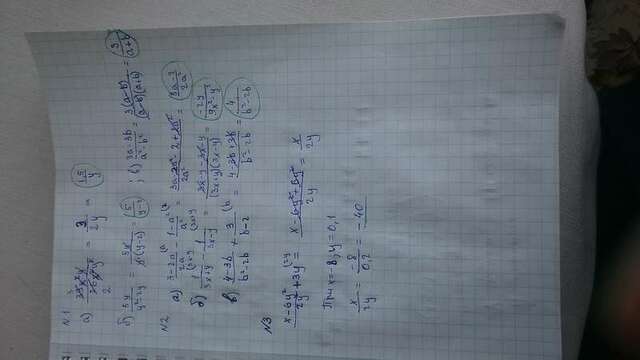 N1
а) 39x³y/26x²y² = 3/2y = 1,5/y
б) 5y/y²-2y = 5y/y(y-2) = 5/y-2 ; в) 3a-3b/a²-b² = 3(a-b)/(a-b)(a+b) = 3/a+b
N2
а) 3-2a/2a (a - 1-a²/a² (2 = 3a-2a²-2+2a²/2a² = 3a-2/2a²
б) 1/3x+y (3x-y - 1/3x-y (3x+y = 3x-y-3x-y/(3x+y)(3x-y) = -2y/9x²-y²
в) 4-3b/b²-2b + 3/b-2 (b = 4-3b+3b/b²-2b = 4/b²-2b
N3
x-6y²/2y + 3y (2y = x-6y²+6y²/2y = x/2y
При x=-8; y=0,1
x/2y = -8/0,2 = -40